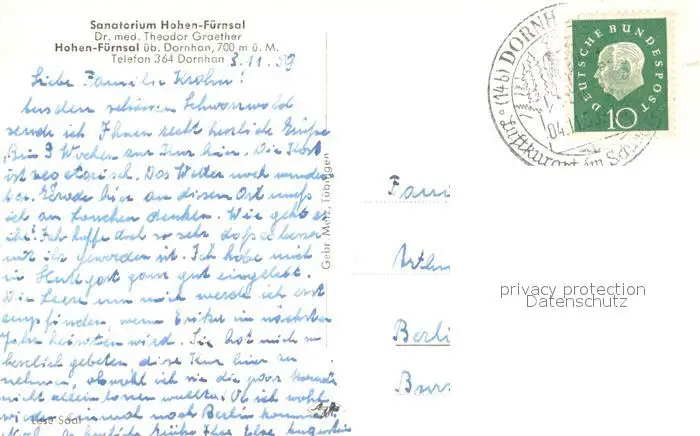 Sanatorium Hohen-Fürnsal
Dr. med. Theodor Graether
Hohen-Fürnsal üb. Dornhan, 700 m ü. M.
Telefon 364 Dornhan
3.11.59
Liebe Familie Krohn!
Aus dem schönen Schwarzwald
sende ich Ihnen recht herzliche Grüße
Bin 3 Wochen zur Kur hier. Die Kost
ist vegetarisch. Das Wetter noch wunder
bar. Gerade hier an diesen Ort muß
ich an denken. Wie geht es
ihr? Ich hoffe doch so sehr daß es besser
mit ihr geworden ist. Ich habe mich
in ganz gut eingelebt.
Die Leere um mich werde ich erst
empfinden, wenn im nächsten
Jahr heiraten wird. Sie hat mich so
herzlich gebeten diese Kur hier zu
nehmen, obwohl ich sie die paar
nicht allein lassen wollte. Ob ich wohl
wieder einmal nach Berlin komme
herzliche Grüße Ihre Else
Lese Saal
Gebr. Metz, Tübingen
(14b) DORNH
04.
Luftkurort im Sch
DEUTSCHE BUNDESPOST
10
Fami
Arthu
Berli
privacy protection
Datenschutz